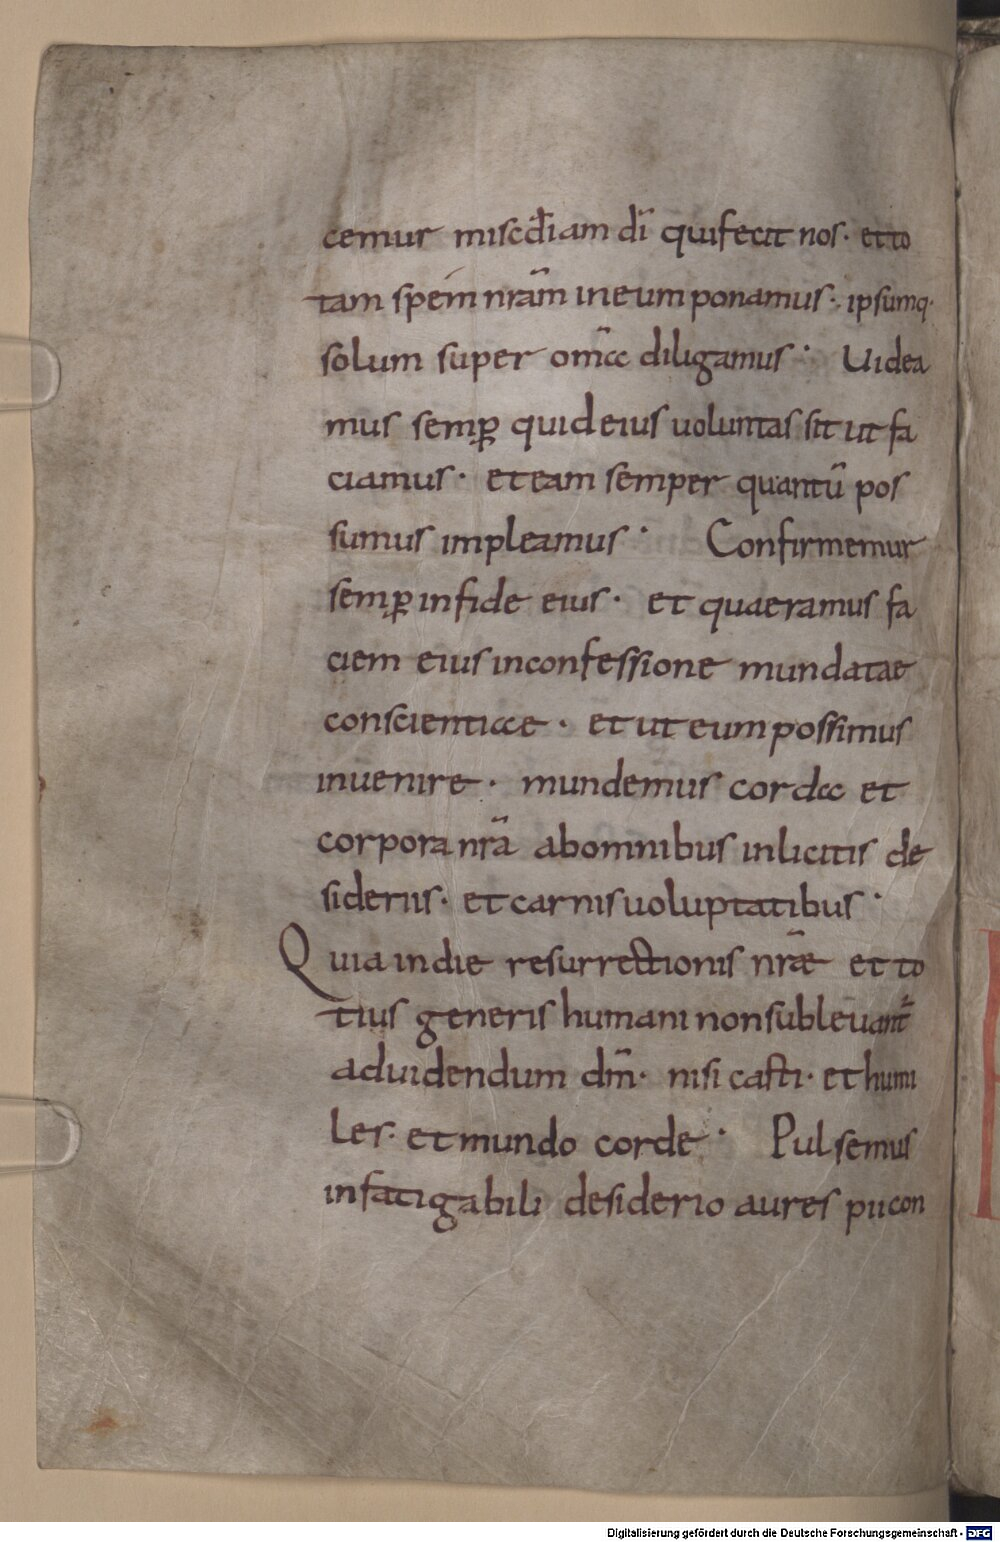 cemur miscdiam di qui fecit nos· et to
tam spem nram in eum ponamus·, ipsumq·
solum super oma diligamus· Uidea
mus semp quid eius uoluntas sit ut fa
ciamus· et eam semper quantū pos
sumus impleamus· Confirmemur
semp in fide eius· et quaeramus fa
ciem eius in confessione mundatae
conscientiae· et ut eum possimus
inuenire· mundemus corda et
corpora nra ab omnibus inlicitis de
sideriis· et carnis uoluptatibus·
Quia in die resurrectionis nrae et to
tius generis humani non subleuant̄
ad uidendum dm̄· nisi casti· et humi
les· et mundo corde· Pulsemus
infatigabili desiderio aures pii con
Digitalisierung gefördert durch die Deutsche Forschungsgemeinschaft - DFG